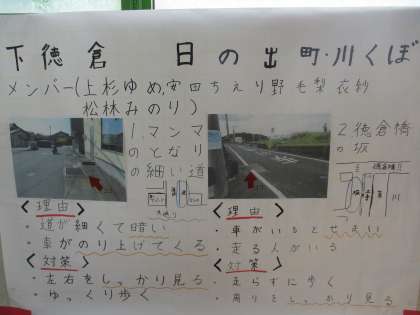 下徳倉 日の出町・川くぼ
メンバー(上杉ゆめ,安田ちえり野毛梨衣紗
松林みのり)
1.マンマのとなりの細い道
2徳倉橋の坂
<理由>
・道が細くて暗い
・車がのり上げてくる
<対策>
・左右をしっかり見る
・ゆっくり歩く
<理由>
・車がいるとせまい
・走る人がいる
<対策>
・走らずに歩く
・周りをしっかり見る